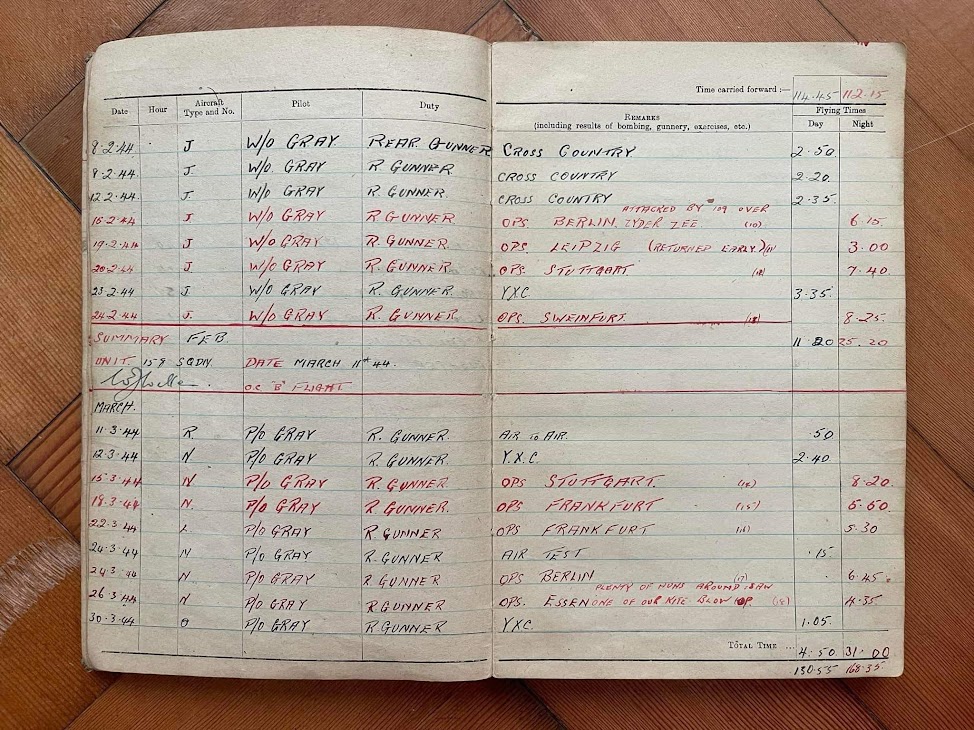 Time carried forward :— 114.45 112.15
Date Hour Aircraft Type and No. Pilot Duty REMARKS (including results of bombing, gunnery, exercises, etc.) Flying Times Day Night
8.2.44 J W/O GRAY REAR GUNNER CROSS COUNTRY 2.50
9.2.44 J. W/O. GRAY R GUNNER CROSS COUNTRY 2.20
12.2.44 J. W/O GRAY R GUNNER. CROSS COUNTRY 2.35
ATTACKED BY 109 OVER
15.2.44 J W/O GRAY R GUNNER OPS BERLIN. ZYDER ZEE (10) 6.15
19.2.44 J W/O GRAY R. GUNNER. OPS. LEIPZIG (RETURNED EARLY.) (11) 3.00
20.2.44 J. W/O GRAY R. GUNNER OPS. STUTTGART 7.40
23.2.44 J W/O GRAY R. GUNNER Y.X.C. 3.35
24.2.44 J. W/O GRAY R GUNNER OPS. SWEINFURT. (13) 8.25
SUMMARY FEB. 11 20 25.20
UNIT. 159 SQDN. DATE MARCH 11th 44.
O.C "B" FLIGHT
MARCH.
11.3.44 R. P/O GRAY R. GUNNER. AIR TO AIR. .50
12.3.44 N P/O GRAY R. GUNNER. Y.X.C. 2.40
15.3.44 N P/O GRAY R GUNNER. OPS STUTTGART. (14) 8.20
18.3.44 N. P/O GRAY R GUNNER. OPS FRANKFURT (15) 5.50
22.3.44 L P/O GRAY R GUNNER OPS FRANKFURT 5.30
24.3.44 N P/O GRAY R. GUNNER AIR TEST .15
24.3.44 N P/O GRAY R GUNNER OPS BERLIN (17) 6.45.
PLENTY OF HUNS AROUND. SAW
26.3.44 N P/O GRAY R GUNNER OPS. ESSEN ONE OF OUR KITE BLOW UP. (18) 4.35
30.3.44 O P/O GRAY R. GUNNER YXC. 1.05.
TOTAL TIME ... 4.50 31.00
130.55 168.35.